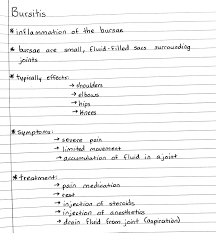 Bursitis
* inflammation of the bursae
* bursae are small, fluid-filled sacs surrounding
joints
* typically effects:
→ shoulders
→ elbows
→ hips
→ knees
* symptoms:
→ severe pain
→ limited movement
→ accumulation of fluid in a joint
* treatment:
→ pain medication
→ rest
→ injection of steroids
→ injection of anesthetics
→ drain fluid from joint (aspiration)